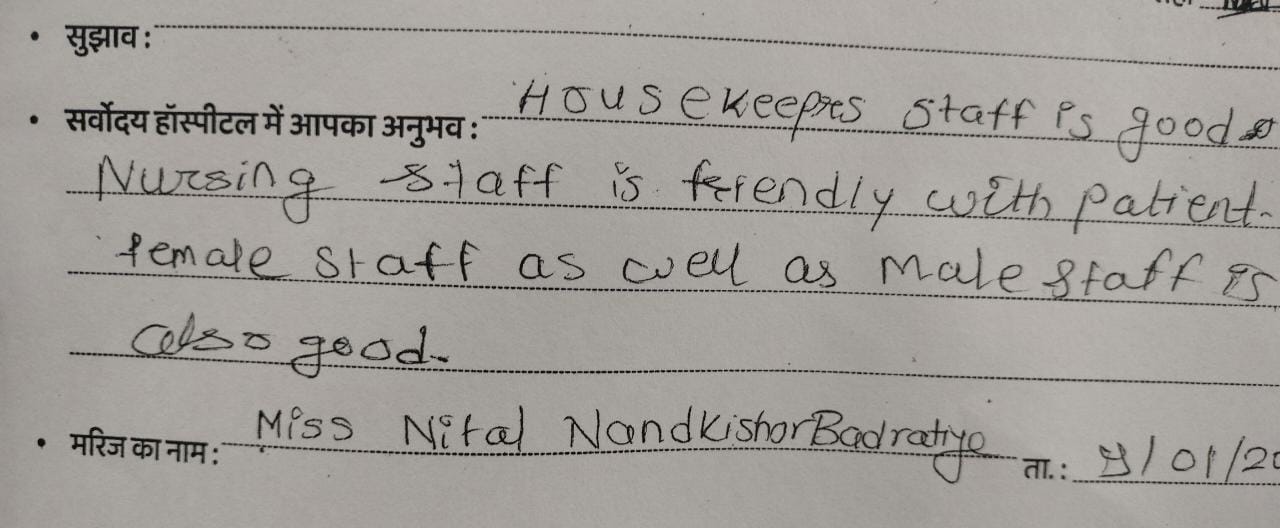 • सुझाव :
• सर्वोदय हॉस्पीटल में आपका अनुभव : Housekeepres staff is good
Nursing staff is frendly with patient.
female staff as well as male staff is
also good.
• मरिज का नाम : Miss Nital Nandkishor Badratiye ता. : 4/01/20